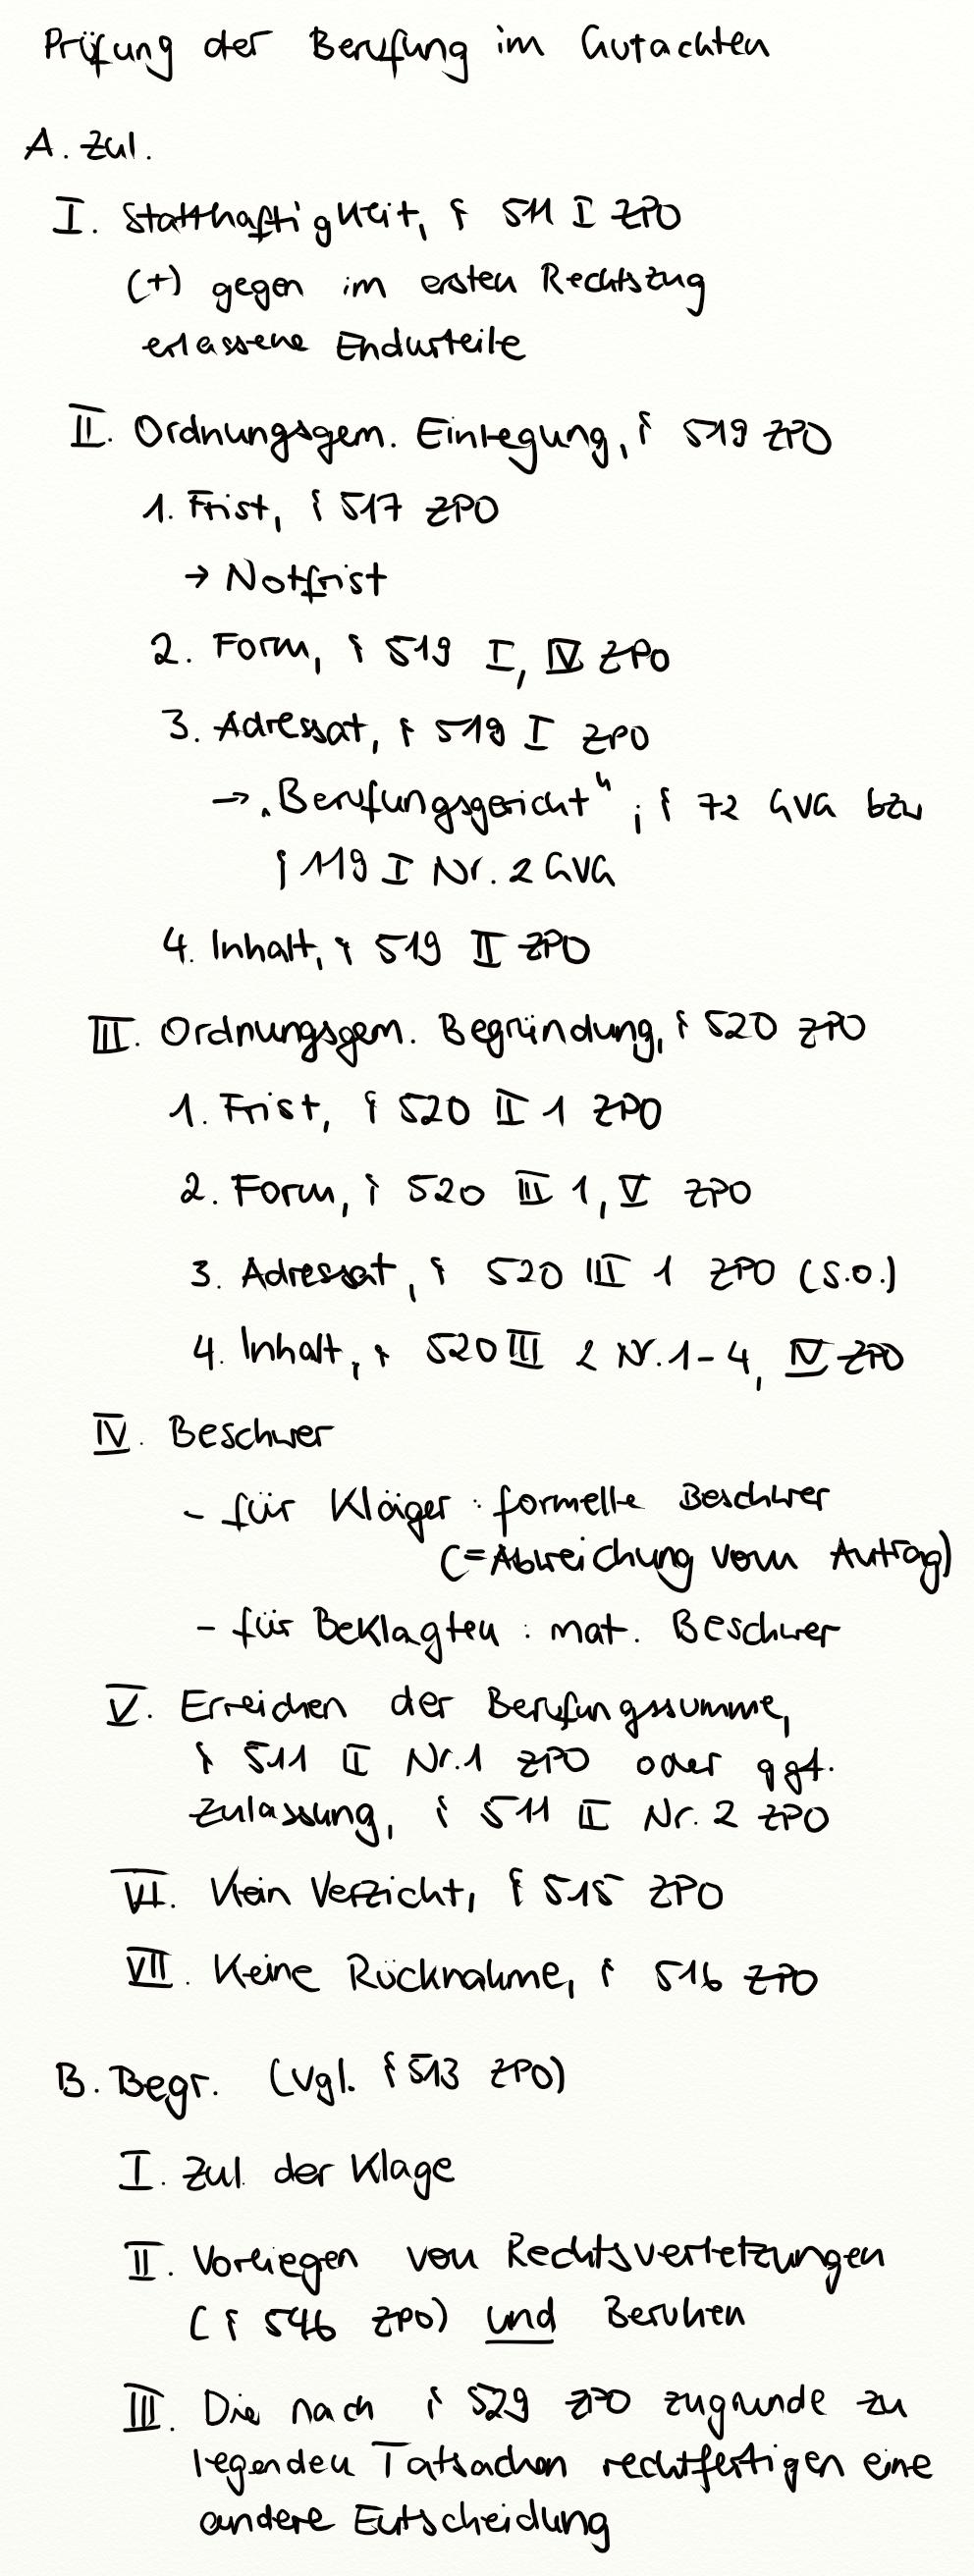 Prüfung der Berufung im Gutachten
A. Zul.
I. Statthaftigkeit, § 511 I ZPO
(+) gegen im ersten Rechtszug
erlassene Endurteile
II. Ordnungsgem. Einlegung, § 519 ZPO
1. Frist, § 517 ZPO
→ Notfrist
2. Form, § 519 I, IV ZPO
3. Adressat, § 519 I ZPO
→ „Berufungsgericht“; § 72 GVG bzw
§ 119 I Nr. 2 GVG
4. Inhalt, § 519 II ZPO
III. Ordnungsgem. Begründung, § 520 ZPO
1. Frist, § 520 II 1 ZPO
2. Form, § 520 III 1, V ZPO
3. Adressat, § 520 III 1 ZPO (s.o.)
4. Inhalt, § 520 III 2 Nr. 1-4, IV ZPO
IV. Beschwer
- für Kläger: formelle Beschwer
(=Abweichung vom Antrag)
- für Beklagten: mat. Beschwer
V. Erreichen der Berufungssumme,
§ 511 II Nr. 1 ZPO oder ggf.
Zulassung, § 511 II Nr. 2 ZPO
VI. Kein Verzicht, § 515 ZPO
VII. Keine Rücknahme, § 516 ZPO
B. Begr. (vgl. § 513 ZPO)
I. Zul. der Klage
II. Vorliegen von Rechtsverletzungen
(§ 546 ZPO) und Beruhen
III. Die nach § 529 ZPO zugrunde zu
legenden Tatsachen rechtfertigen eine
andere Entscheidung